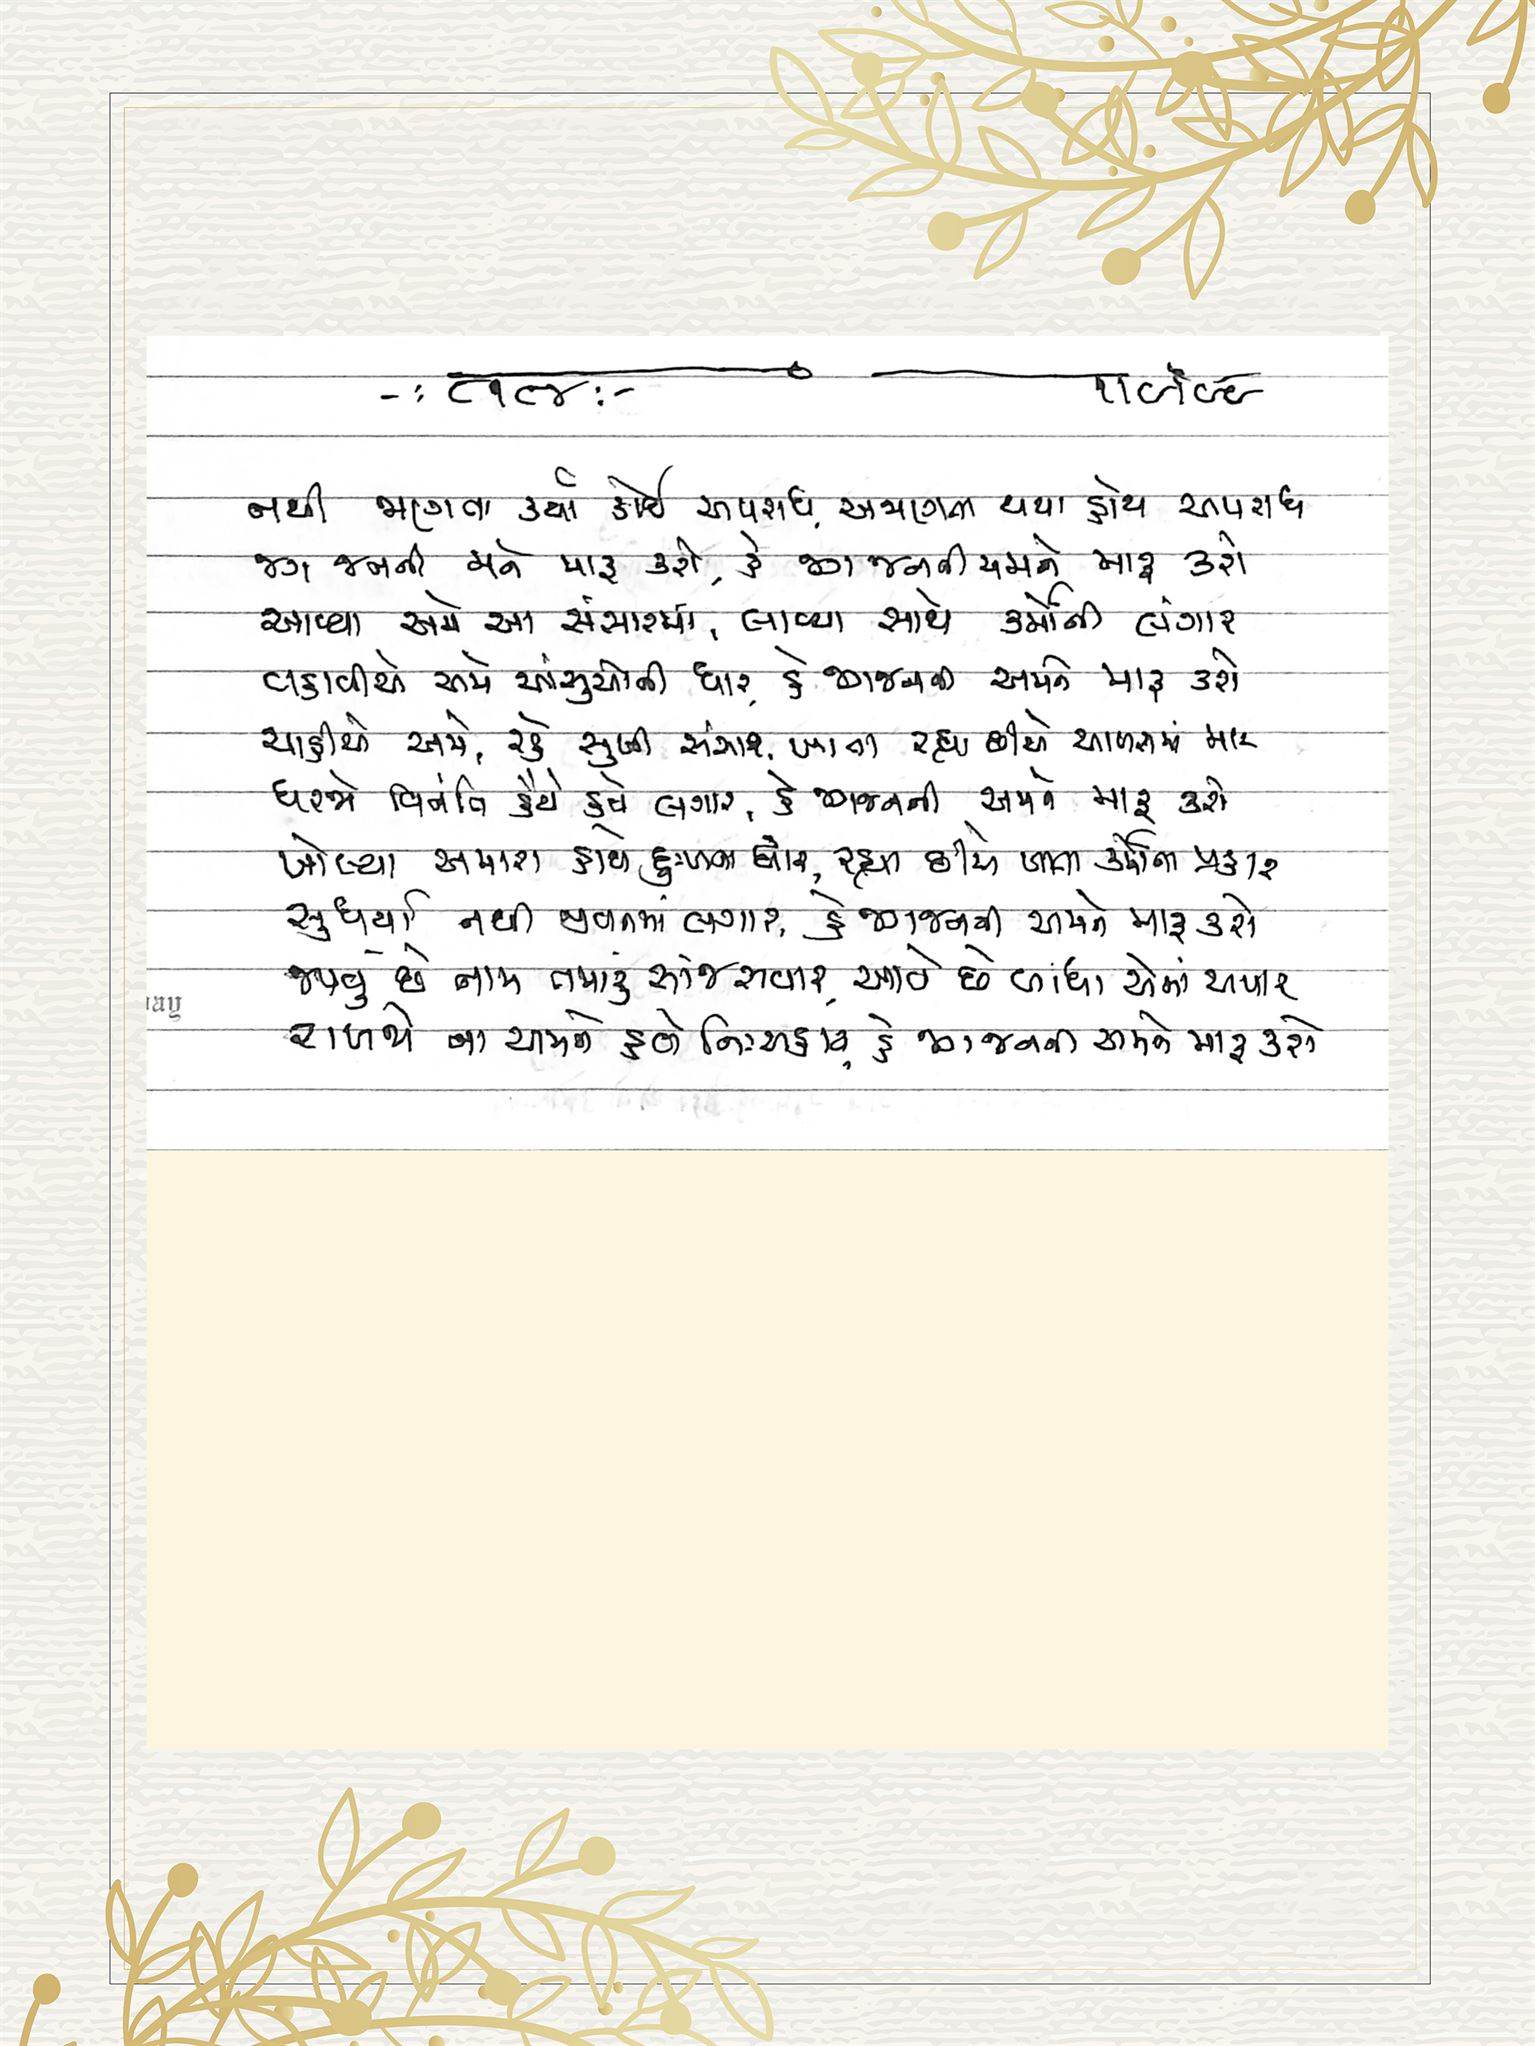 -: ૮૧૯૪ :-
નથી જાણતા કર્યા કોઈ અપરાધ, અજાણતા થયા હોય અપરાધ
જગ જનની મને માફ કરો, હે જગજનની અમને માફ કરો
આવ્યા અમે આ સંસારમાં, લાવ્યા સાથે કર્મોની લંગાર
વહાવીએ અમે આંસુઓની ધાર, હે જગજનની અમને માફ કરો
ચાહીએ અમે, રહે સુખી સંસાર, ખાતા રહ્યા છીએ એમાં માર
ધરજો વિનંતિ હૈયે હવે લગાર, હે જગજનની અમને માફ કરો
ખોલ્યા અમારા હાથે દુઃખના દ્વાર, રહ્યા છીએ ખાતા કર્મોના પ્રહાર
સુધર્યા નથી જીવનમાં લગાર, હે જગજનની અમને માફ કરો
જપવું છે નામ તમારું સાંજ સવાર, આવે છે બાધા એમાં અપાર
રાખજો ના અમને હવે નિઃસહાય, હે જગજનની અમને માફ કરો